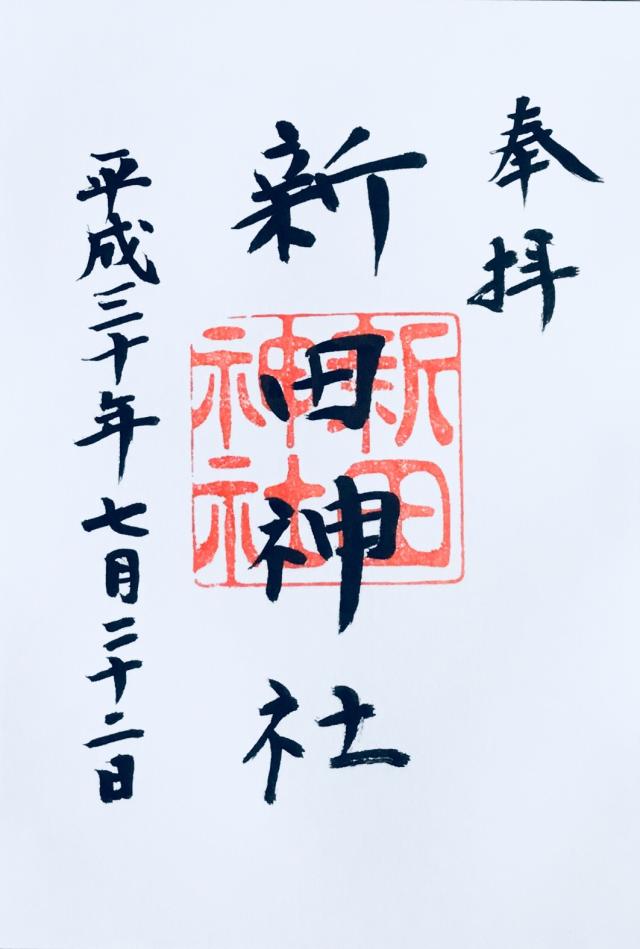 奉拝
新田神社
新田神社
平成三十年七月二十二日